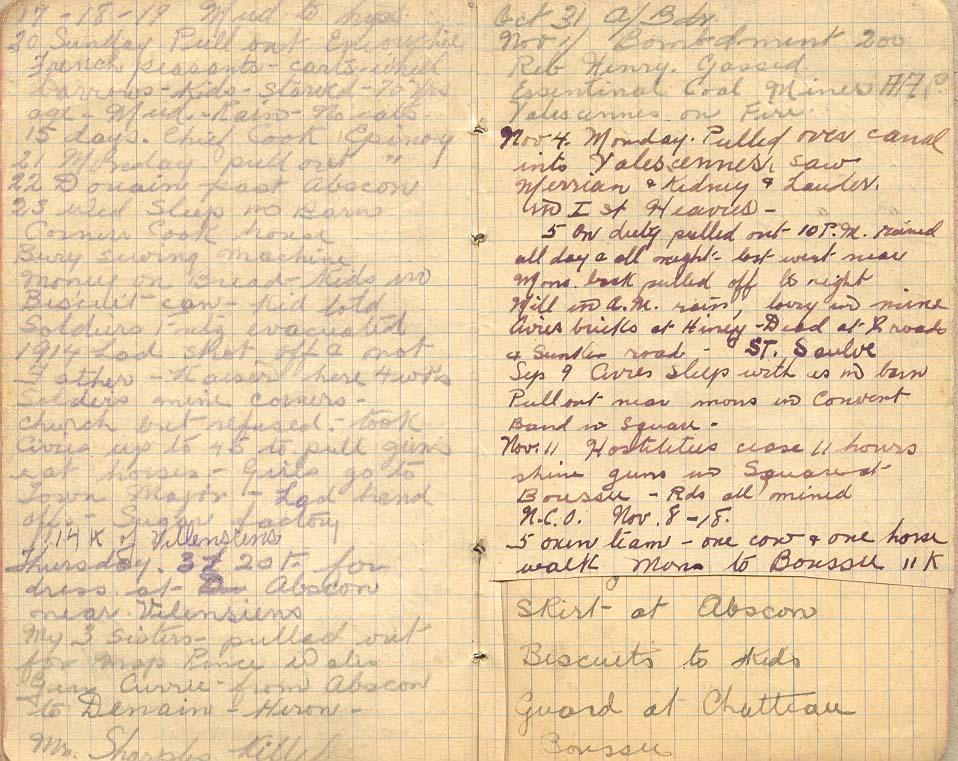 17 - 18 - 19 Mud to
20 Sunday Pull out
French peasants - carts - wheel
barrows - Kids - starved - 70 yrs
age - Mud - Rain - No eats
15 days. Chief Cook Epinoy
21 Monday - pull out "
22 Douain past Abscon
23 Wed Sleep in Barn
Corner Cook house
Bury sewing machine
Money on Bread - Kids in
Biscuit can - Kid told
Soldiers Fritz evacuated
1914 Lad shot off a
Father - Kaiser here 4 wks
Solders mine corners -
church but refused - took
Civies up to 45 to pull guns
eat horses - Girls go to
Town Major - Lad hand
off - Sugar factory
14 K of Vilensiens
Thursday. 31 20 F. for
dress at Abscon
near Vilensiens
My 3 sisters - pulled out
for Map Prince Wales
Gen Currie - from Abscon
to Denain - Heron -
Mr. Sharples Killed
Oct 31 A/Bdr
Nov 1/ Bombdment 200
Reb Henry. Gassed
Essentinal Coal Miner
Valescennes on Fire
Nov 4. Monday. Pulled over canal
into Valescennes, saw
Merrian & Kidney & Lauder.
in I st Heavies -
5 On duty pulled out 10 P.M. rained
all day & all night - lost went near
Mons. back pulled off to right
Will in a.m. rain, lorry in mine
Civies bricks at Hiney - Dead at X roads
& Sunken road - ST. Saulve
Sep 9 Civies Sleep with us in barn
Pull out near mons in Convent
Band in Square -
Nov. 11 Hostilities cease 11 hours
shine guns in Square at
Boussu - Rds all mined
N.C.O. Nov. 8 - 18.
5 oxen team - one cow & one horse
walk Mons to Boussu 11 K
Skirt at Abscon
Biscuits to Kids
Guard at Chatteau
Boussu